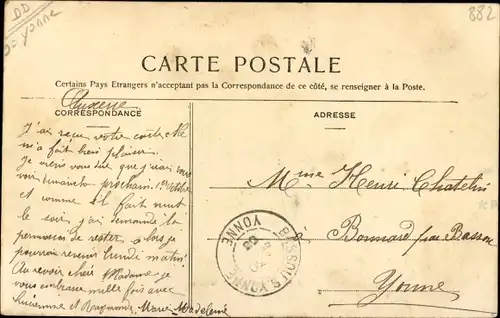 DD
Yonne
882
CARTE POSTALE
Certains Pays Etrangers n'acceptant pas la Correspondance de ce côté, se renseigner à la Poste.
Auxerre
CORRESPONDANCE
ADRESSE
J'ai reçu votre carte elle
m'a fait bien plaisir.
Je viens vous dire que j'irai vous
voir dimanche prochain 1er Octobre
et comme il fait nuit
le soir, j'ai demandé la
permission de rester, alors je
pourrai revenir lundi matin.
Au revoir chère Madame je
vous embrasse mille fois avec
Lucienne et Raymonde, Marie Madeleine
Mme Henri Chatelin
à Bonnard par Bassou
Yonne
BASSOU YONNE
YONNE